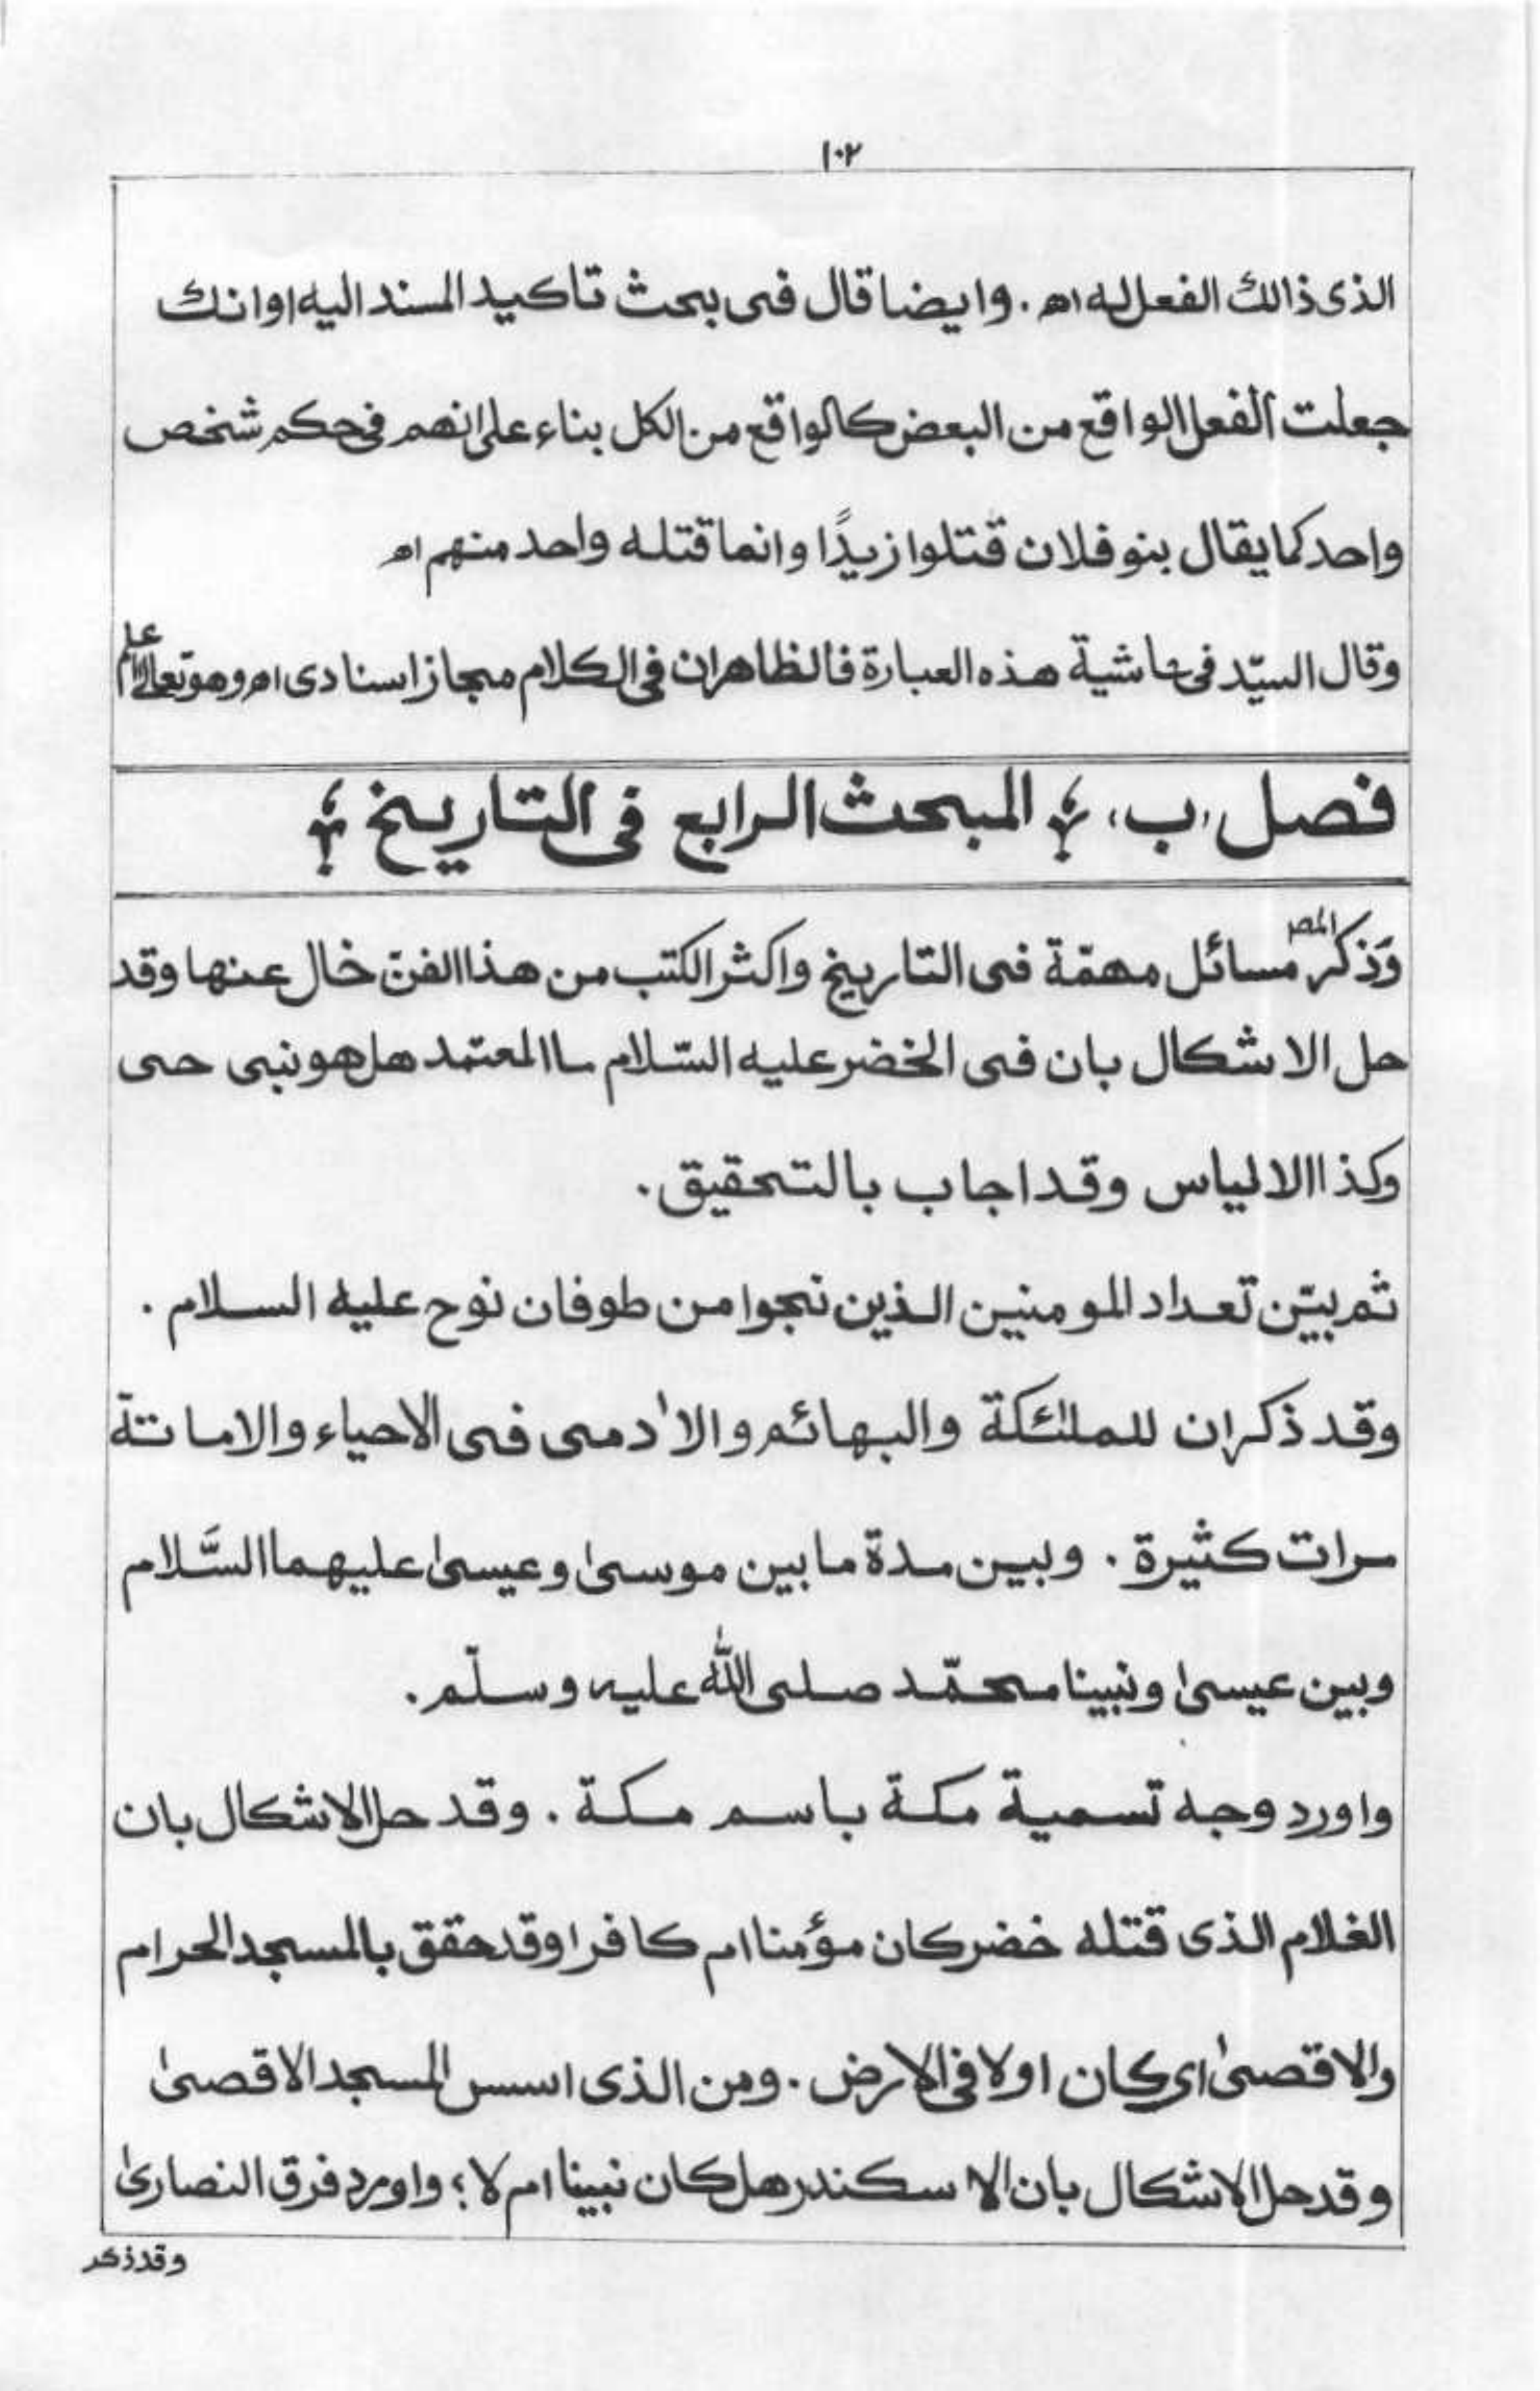 ١٠٢
الذى ذالك الفعل له اه . وايضا قال فى بحث تاكيد المسند اليه اوانك
جعلت الفعل الواقع من البعض كالواقع من الكل بناء على انهم فى حكم شخص
واحد كما يقال بنو فلان قتلوا زيدًا وانما قتله واحد منهم اه
وقال السيّد فى حاشية هذه العبارة فالظاهر ان فى الكلام مجاز اسنادى اه وهو تعالى اعلم
فصل ،ب، المبحث الرابع فى التاريخ
وَذكر المص مسائل مهمّة فى التاريخ واكثر الكتب من هذا الفنّ خال عنها وقد
حل الاشكال بان فى الخضر عليه السّلام ما المعتمد هل هو نبى حى
وكذا الالياس وقد اجاب بالتحقيق .
ثم بيّن تعداد المومنين الذين نجوا من طوفان نوح عليه السلام .
وقد ذكر ان للملٰئكة والبهائم والاٰدمى فى الاحياء والاماتة
مرات كثيرة . وبين مدة ما بين موسىٰ وعيسىٰ عليهما السَّلام
وبين عيسىٰ ونبينا محمّد صلى الله عليه وسلّم .
واورد وجه تسمية مكة باسم مكة . وقد حل الاشكال بان
الغلام الذى قتله خضر كان مؤمنا ام كافرا وقد حقق بالمسجد الحرام
والاقصىٰ اى كان اولا فى الارض . ومن الذى اسس المسجد الاقصىٰ
وقد حل الاشكال بان الاسكندر هل كان نبينا ام لا ؛ واورد فرق النصارىٰ
وقد ذكر